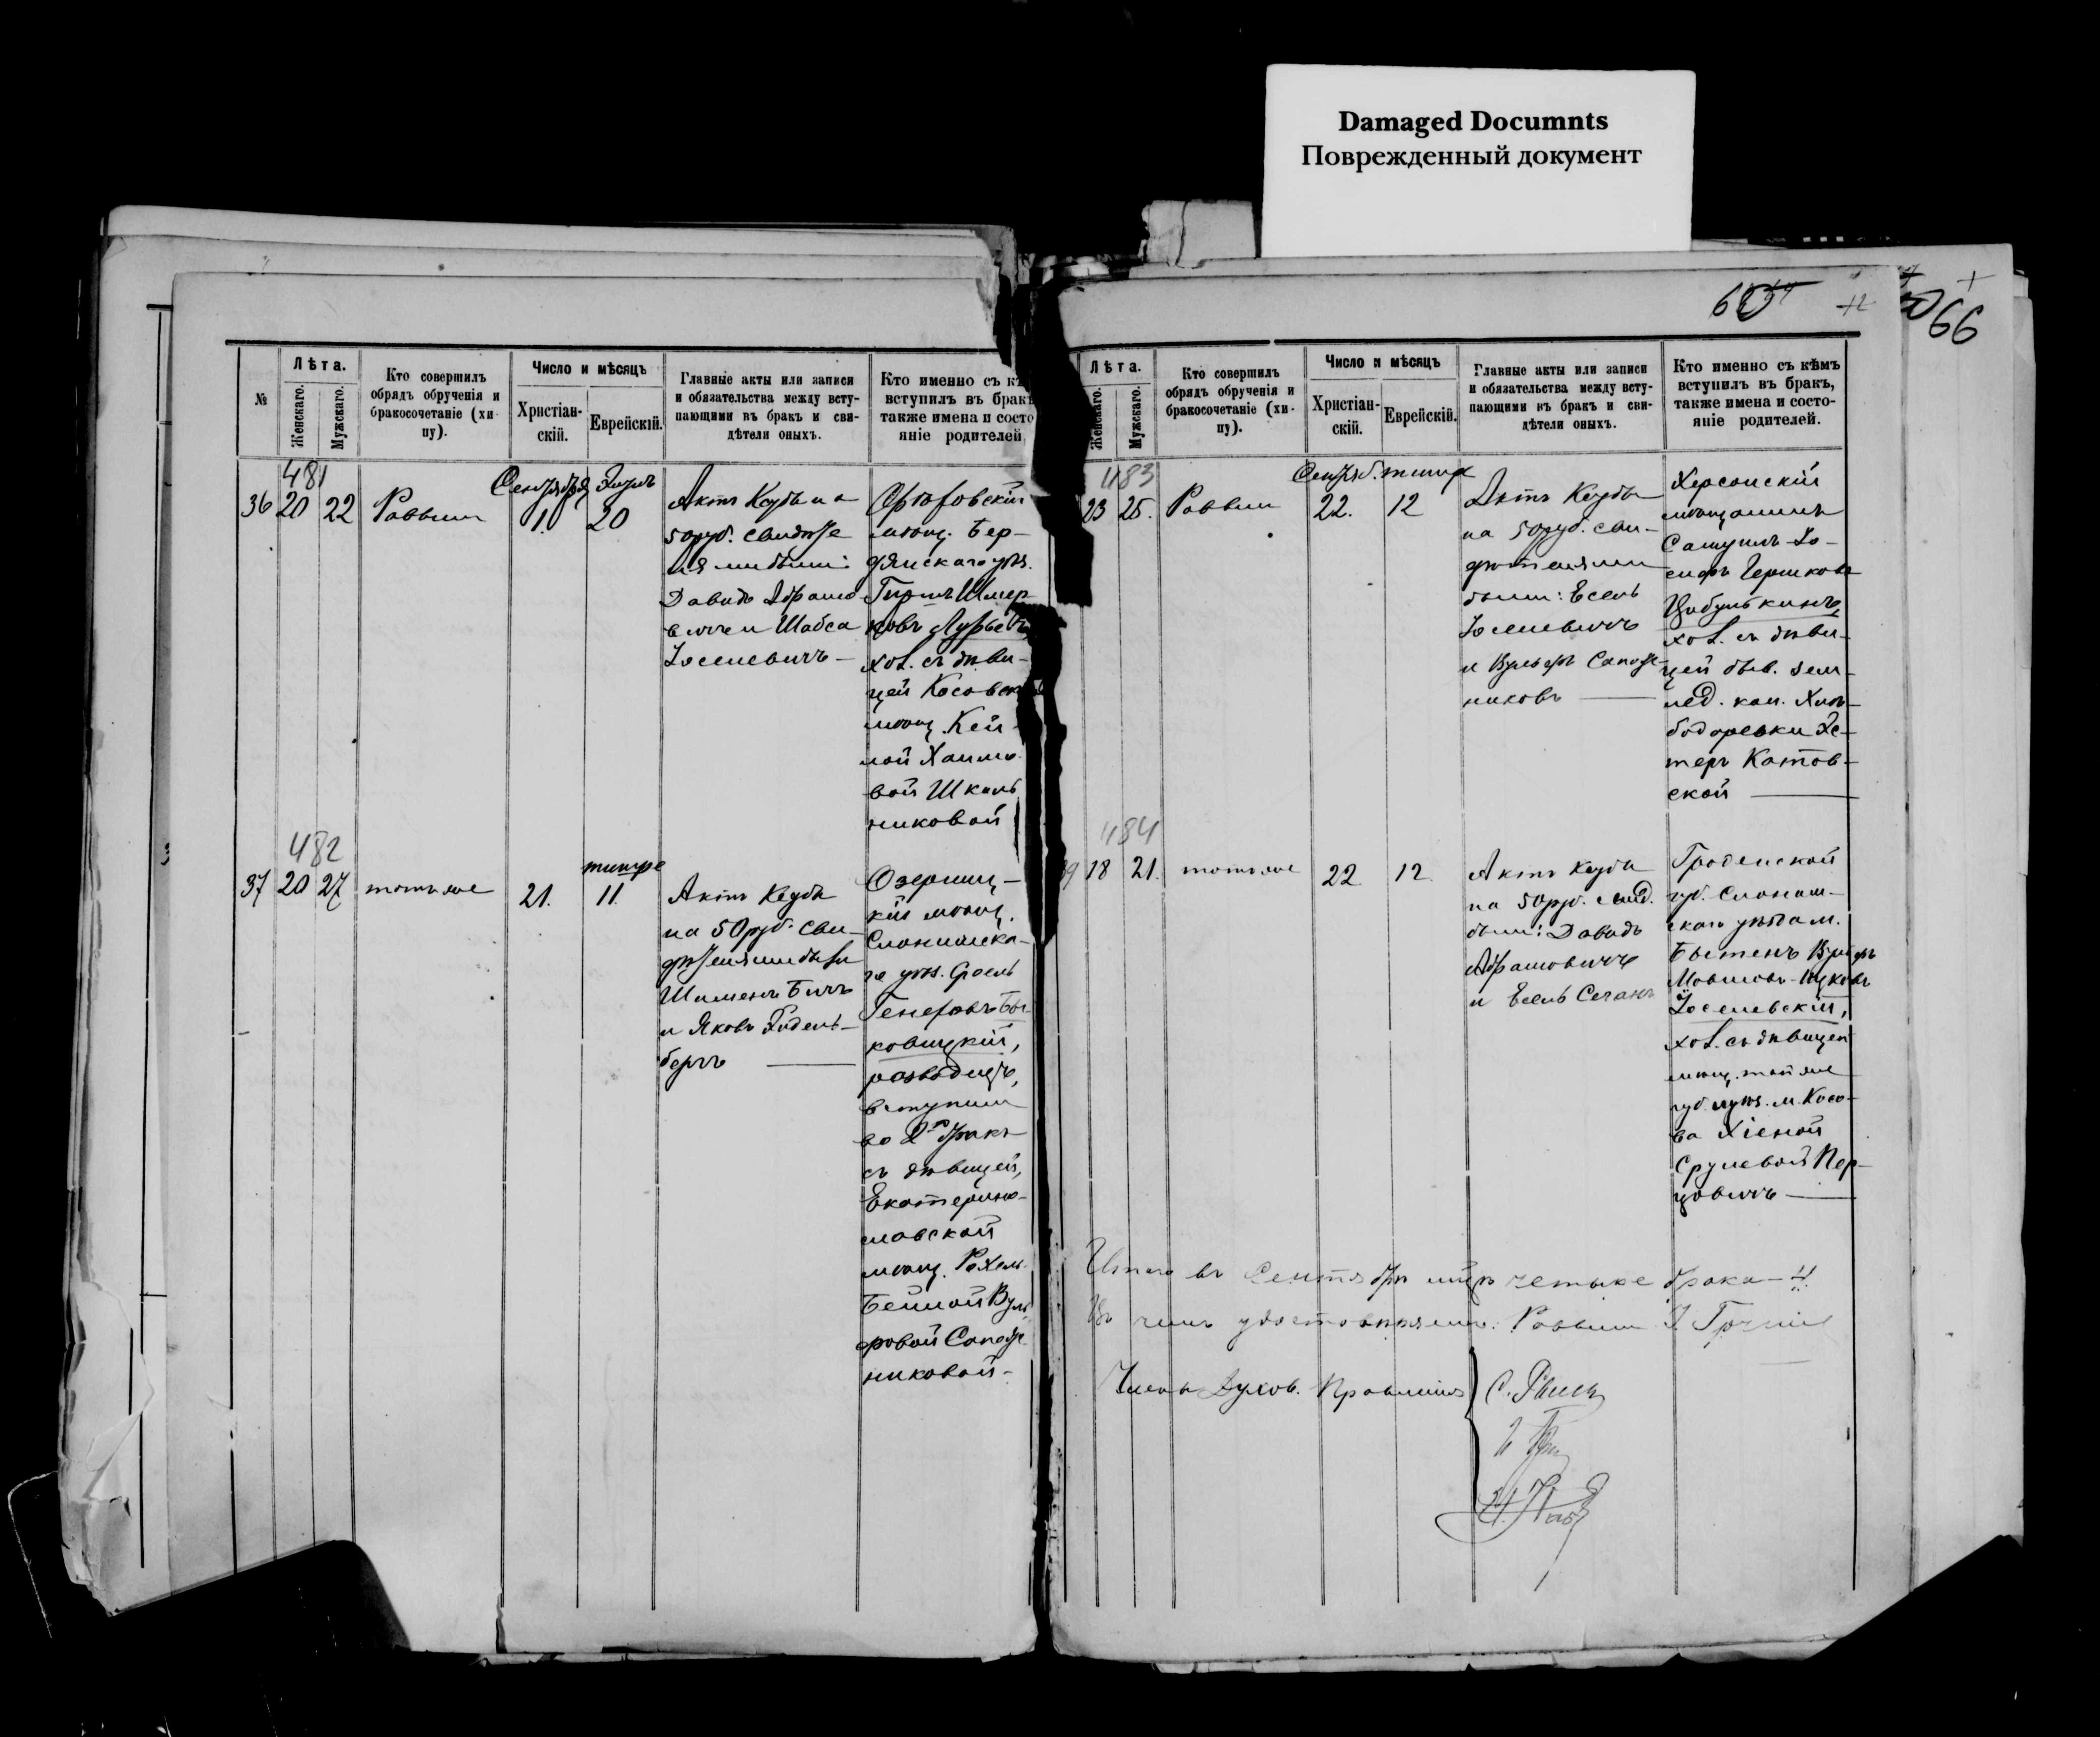 Damaged Documnts
Поврежденный документ
66
№
Лѣта.
Женскаго.
Мужскаго.
Кто совершилъ
обрядъ обрученія и
бракосочетаніе (хи-
пу).
Число и мѣсяцъ
Христіан-
скій.
Еврейскій.
Главные акты или записи
и обязательства между всту-
пающими въ бракъ и сви-
дѣтели оныхъ.
Кто именно съ
вступилъ въ бракъ
также имена и состо
яніе родителей
481
36
20
22
Раввинъ
Сентября
1.
Элулъ
20
Актъ Кеубы на
50 руб. свидѣте
ля ми были:
Давидъ Абрамо
вичъ и Шабса
Іоселевичъ —
Орѣховскій
мѣщ. Бер-
дянскаго уѣз.
Шмер
ковъ Лурье
хол. съ дѣви-
цей Косовск
мѣщ. Кей-
лой Хаимо
вой Школь
никовой
482
37
20
27
тотъ же
21.
тишре
11.
Актъ Кеубы
на 50 руб. сви-
дѣтелями были
Шименъ Бичъ
и Яковъ Эйдель-
бергъ —
Озерниц-
кій мѣщ.
Слонимска-
го уѣз. Сроель
Бы-
ковицкій,
разводецъ,
вступилъ
во 2й бракъ
съ дѣвицей,
Екатерино-
славской
мѣщ. Рохель-
Бейлой Вуль
фовой Сапож-
никовой -
Лѣта.
Женскаго.
Мужскаго.
Кто совершилъ
обрядъ обрученія и
бракосочетаніе (хи-
пу).
Число и мѣсяцъ
Христіан-
скій.
Еврейскій.
Главные акты или записи
и обязательства между всту-
пающими въ бракъ и сви-
дѣтели оныхъ.
Кто именно съ кѣмъ
вступилъ въ бракъ,
также имена и состо-
яніе родителей.
483
23
25.
Раввинъ
Сентяб.
22.
тишре
12
Актъ Кеубы
на 50 руб. сви-
дѣтелями
были: Есель
Іоселевичъ
и Вульфъ Сапож-
никовъ —
Херсонскій
мѣщанинъ
Самуилъ-Іо-
сифъ Гершковъ
Цибулькинъ,
хол. съ дѣви-
цей быв. зем-
лед. кол. Хлѣ-
бодаревки Эс-
теръ Котов-
ской —
484
39
18
21.
тотъ же
22
12
Актъ Кеубы
на 50 руб. свид.
были: Давидъ
Абрамовичъ
и Есель Сеганъ
Гродненской
губ. Слоним-
скаго уѣзда м.
Бытенъ Вульфъ
Мовшовъ-Ицковъ
Іоселевскій,
хол. съ дѣвицей
мѣщ. той же
губ. и уѣз. м. Косо-
ва Хіеной
Срулевой Пер-
цовичъ —
Итого въ Сентябрѣ мцѣ четыре брака — 4.
Въ чемъ удостовѣряемъ: Раввинъ
Члены Духов. Правленія